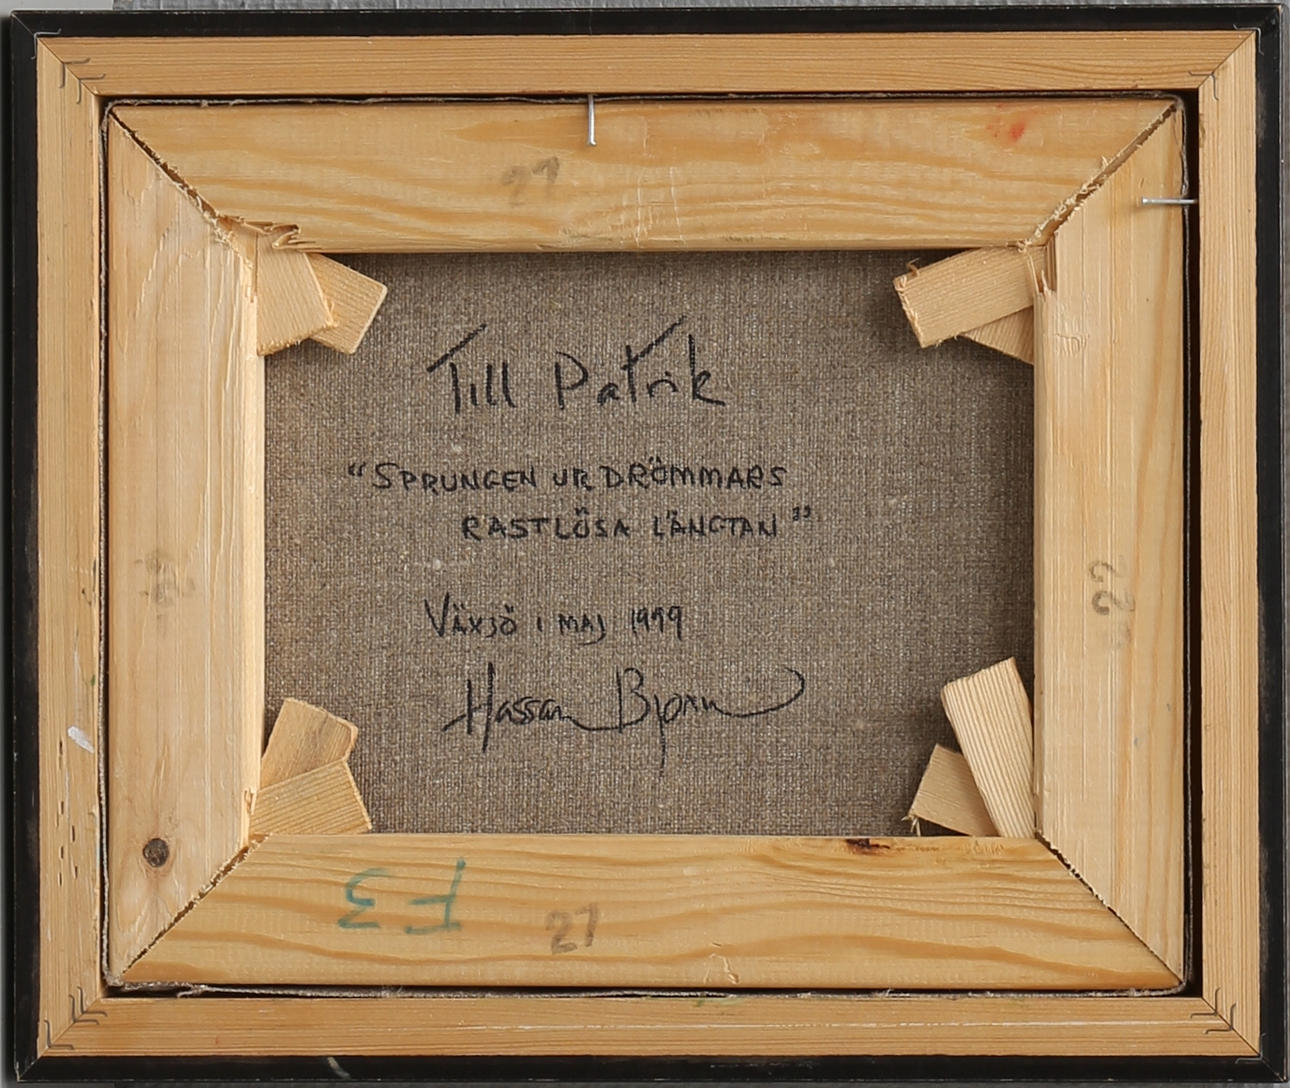 27
Till Patrik
"SPRUNGEN UR DRÖMMARS
RASTLÖSA LÄNGTAN"
VÄXJÖ I MAJ 1999
Hassan Bjorn
22
F3
27